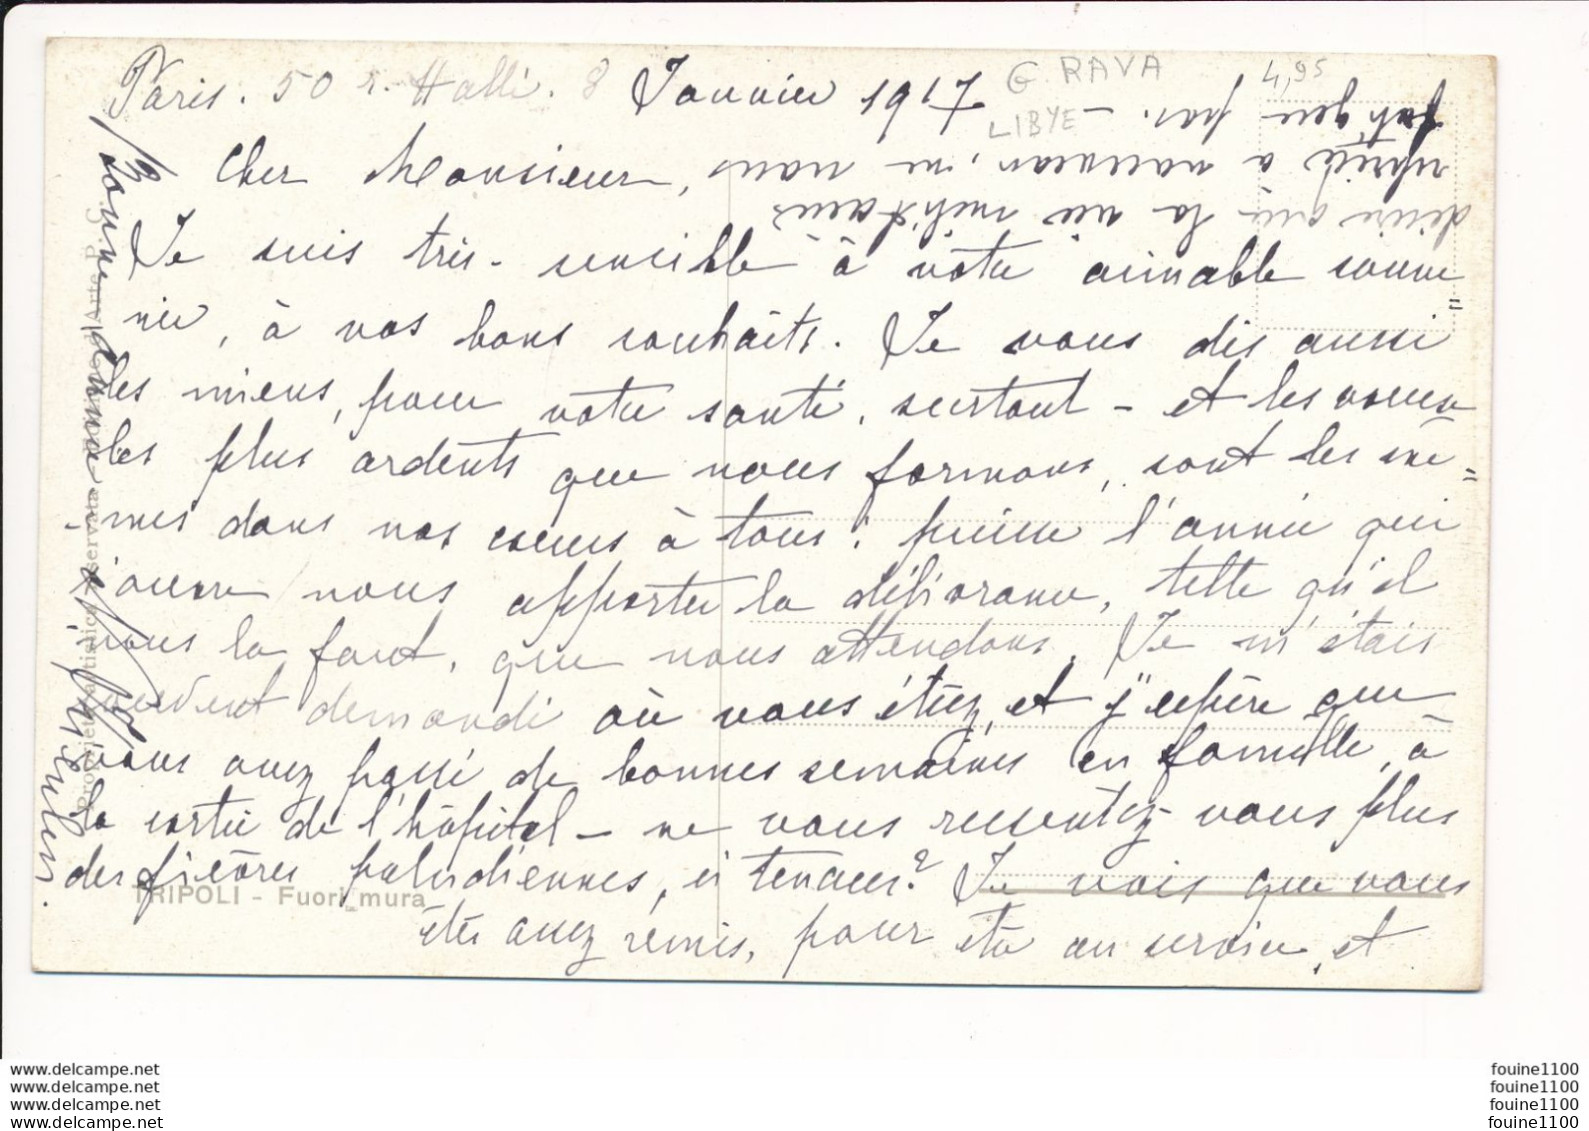 Paris. 50 r. Hallé. 8 Janvier 1917
G. RAVA
LIBYE
4,95
Cher Monsieur,
Je suis très sensible à votre aimable souve=
nir, à vos bons souhaits. Je vous dis aussi
les miens, pour votre santé, surtout – et les vœux
les plus ardents que nous formons, sont les mê=
-mes dans nos cœurs à tous : puisse l'année qui
s'ouvre nous apporter la délivrance, telle qu'il
nous la faut, que nous attendons. Je m'étais
souvent demandé où vous étiez, et j'espère que
vous avez passé de bonnes semaines en famille, à
la sortie de l'hôpital – ne vous ressentez-vous plus
des fièvres paludiennes, si tenaces? Je vois que vous
êtes assez remis, pour être au service, et
désire que la vie militaire
reprise à nouveau, ne vous
fatigue pas. –
Bonne année
TRIPOLI - Fuori mura
Proprietà artistica riservata
www.delcampe.net
www.delcampe.net
www.delcampe.net
www.delcampe.net
fouine1100
fouine1100
fouine1100
fouine1100